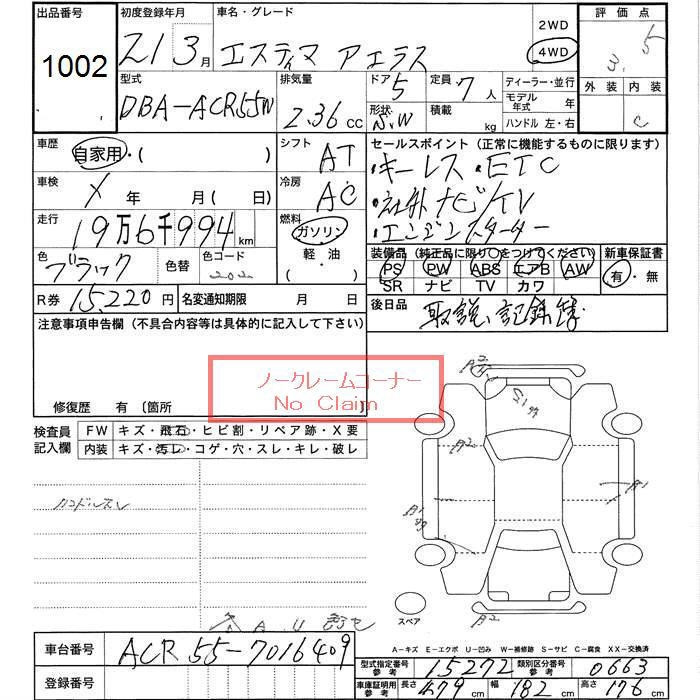 出品番号 初度登録年月 車名・グレード 2WD 評価点
1002 21 3月 エスティマ アエラス 4WD 3.5
型式 排気量 ドア 5 定員 7人 ディーラー・並行 外装 内装
DBA-ACR55W 2.36 cc 形状 S.W 積載 kg モデル年式 年 C
ハンドル 左・右
車歴 自家用・( ) シフト AT セールスポイント(正常に機能するものに限ります)
・キーレス ・ETC
車検 X 年 月(日) 冷房 AC ・社外ナビ/TV
走行 19万6千994km 燃料 ガソリン ・エンジンスターター
色 ブラック 色替 色コード 202 軽・油 ( ) 装備品(純正品に限り○をつけてください) 新車保証書
PS PW ABS エアB AW 有・無
SR ナビ TV カワ
R券 15,220円 名変通知期限 月 日 後日品 取説、記録簿
注意事項申告欄(不具合内容等は具体的に記入して下さい)
ノークレームコーナー
No Claim
修復歴 有〔箇所 〕
検査員記入欄 FW キズ・飛石・ヒビ割・リペア跡・X要
内装 キズ・汚レ・コゲ・穴・スレ・キレ・破レ
ハンドルスレ
A2
A2
A1
A1
A2
スペア
A-キズ E-エクボ U-凹み W-補修跡 S-サビ C-腐食 XX-交換済
車台番号 ACR55-7016409
型式指定番号 参考 15272 類別区分番号 参考 0663
登録番号 車庫証明用 参考 長さ 479cm 幅 182cm 高さ 176cm